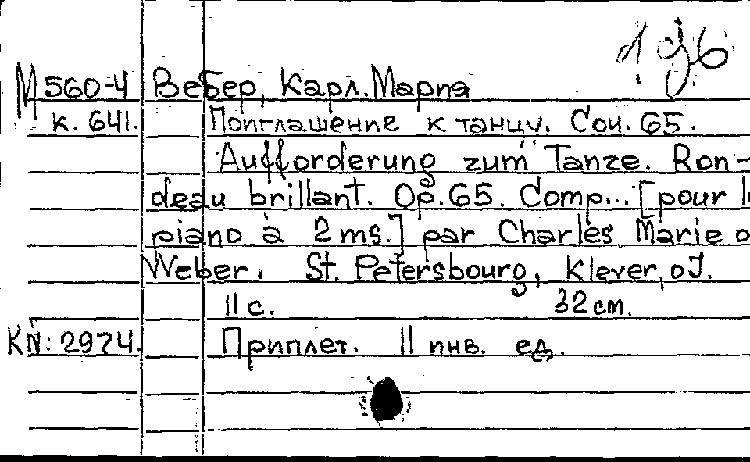 М560-4 Вебер, Карл.Мария
к. 641. Поиглашение к танцу. Соч. 65.
Aufforderung zum Tanze. Ron-
deau brillant. Op.65. Comp... [pour l
piano à 2 ms.] par Charles Marie
Weber. St. Petersbourg, Klever, oJ.
11 с. 32 cm.
KN: 2974. Приплет. 11 инв. ед.